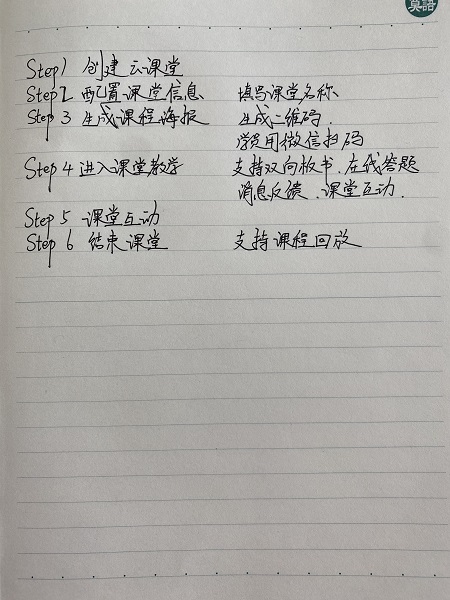 莫語
Step1 创建云课堂
Step2 配置课堂信息 填写课堂名称
Step 3 生成课程海报 生成二维码.
学员用微信扫码
Step 4 进入课堂教学 支持双向板书.在线答题
消息反馈.课堂互动.
Step 5 课堂互动
Step 6 结束课堂 支持课程回放